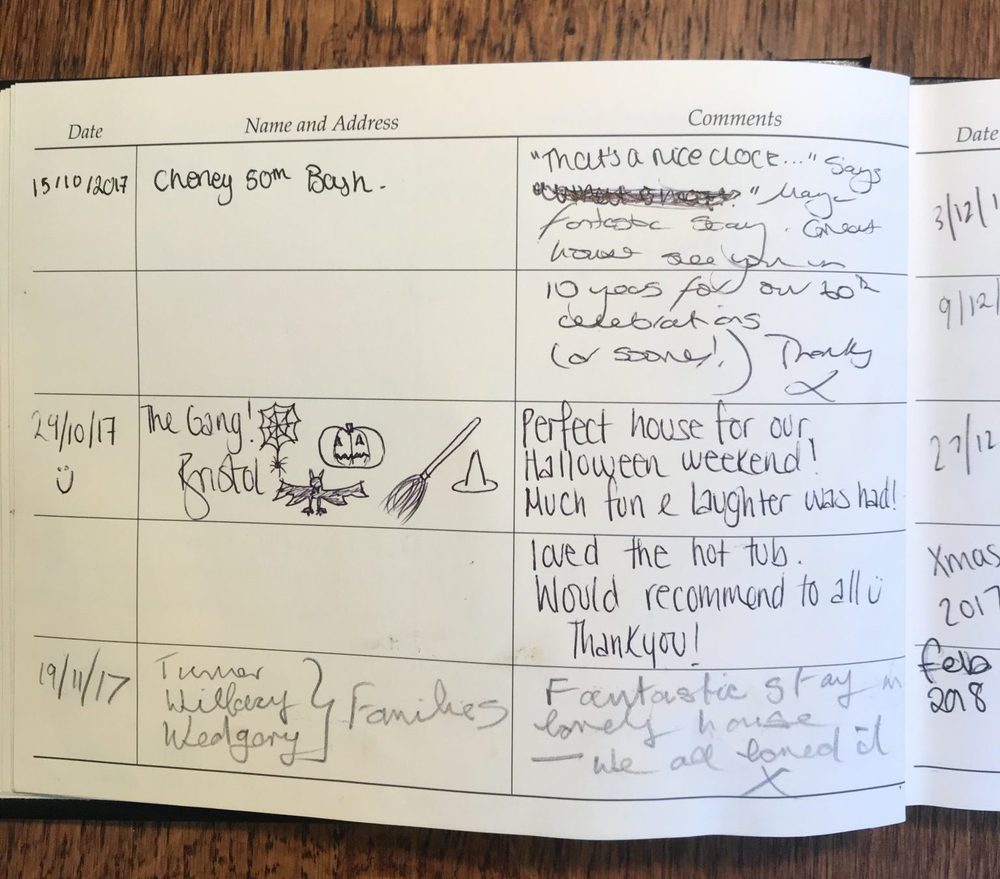 Date Name and Address Comments
15/10/2017 Cheney 50th Bash.
"That's a nice clock..." Says
" Maya
fantastic stay. Great
house see you in
10 years for our 60th
celebrations
(or sooner!) Thanks
x
29/10/17 The Gang!
Bristol
Perfect house for our
Halloween weekend!
Much fun & laughter was had!
loved the hot tub.
Would recommend to all
Thankyou!
19/11/17 Turner
Families
Fantastic stay in
lovely house
— we all loved it
X
Date
3/12/1
9/12/
27/12
Xmas
2017
Feb
2018